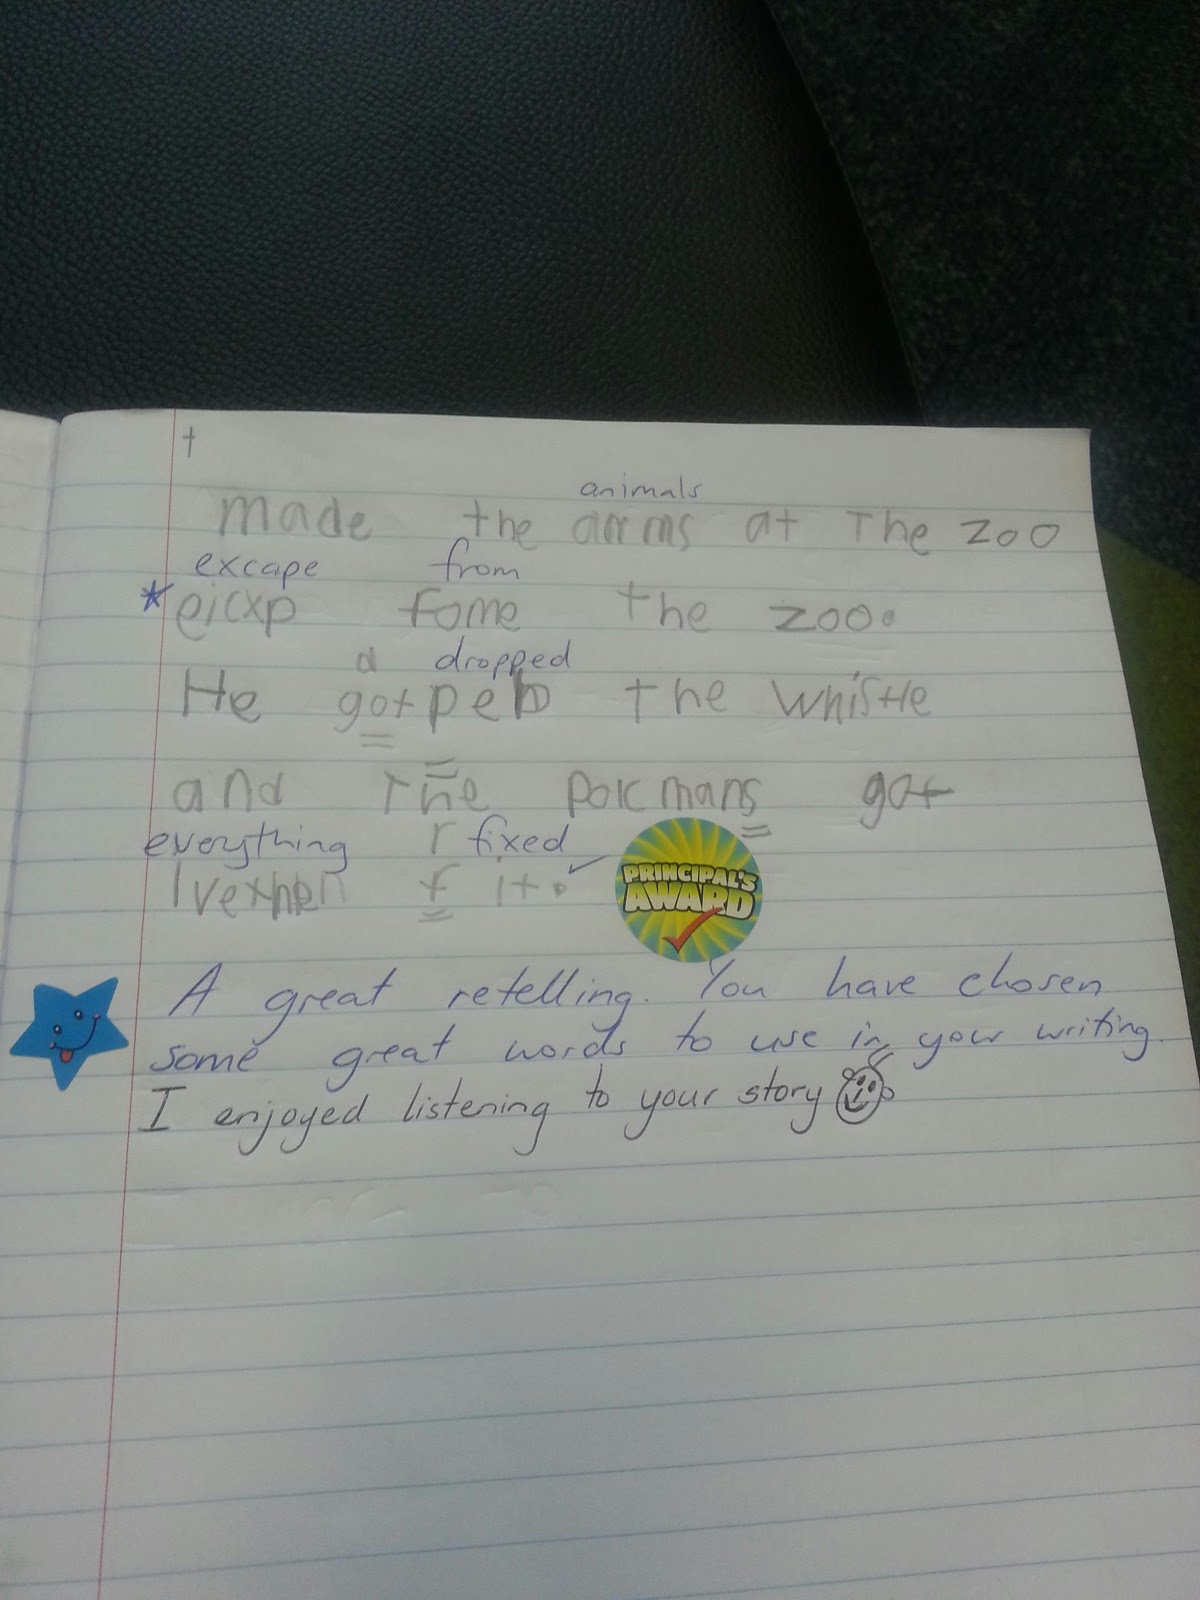 t
animals
made the anms at The zoo
excape from
eicxp fome the zoo.
d dropped
He gotped the whistle
and The polcmans got
everything r fixed
f it.
PRINCIPAL'S
AWARD
A great retelling. You have chosen
some great words to use in your writing.
I enjoyed listening to your story